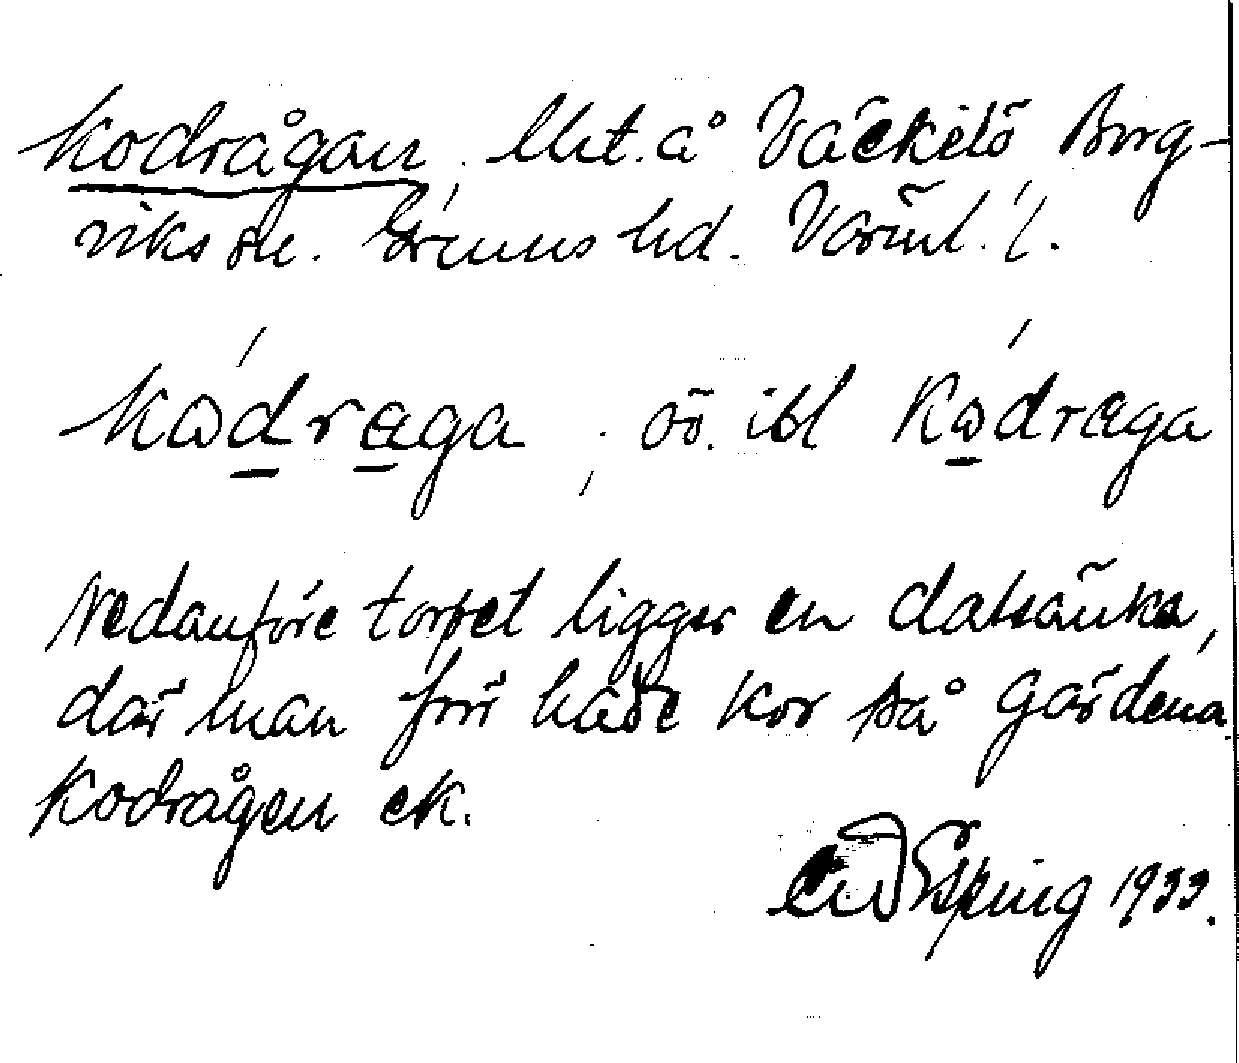 Kodrågan, lht. å Väckelö, Borg-
viks sn. Grums hd. Värml. l.
kωdræga; äv. ibl kωdræga
Nedanföre torpet ligger en dalsänka,
där man förr hade kor på gärdena.
Kodrågen ek.
Esping 1933.